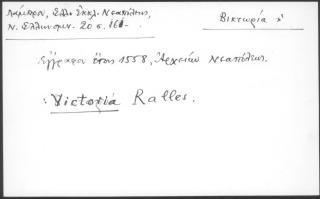 Λάμπρου, Ἑλλ. Ἐκκλ. Νεαπόλεως,
Ν. Ἑλληνομν. 20 σ. 161-
Βικτωρία
Ἔγγραφον ἔτους 1558, Ἀρχείων Νεαπόλεως.
: Victoria Ralles.